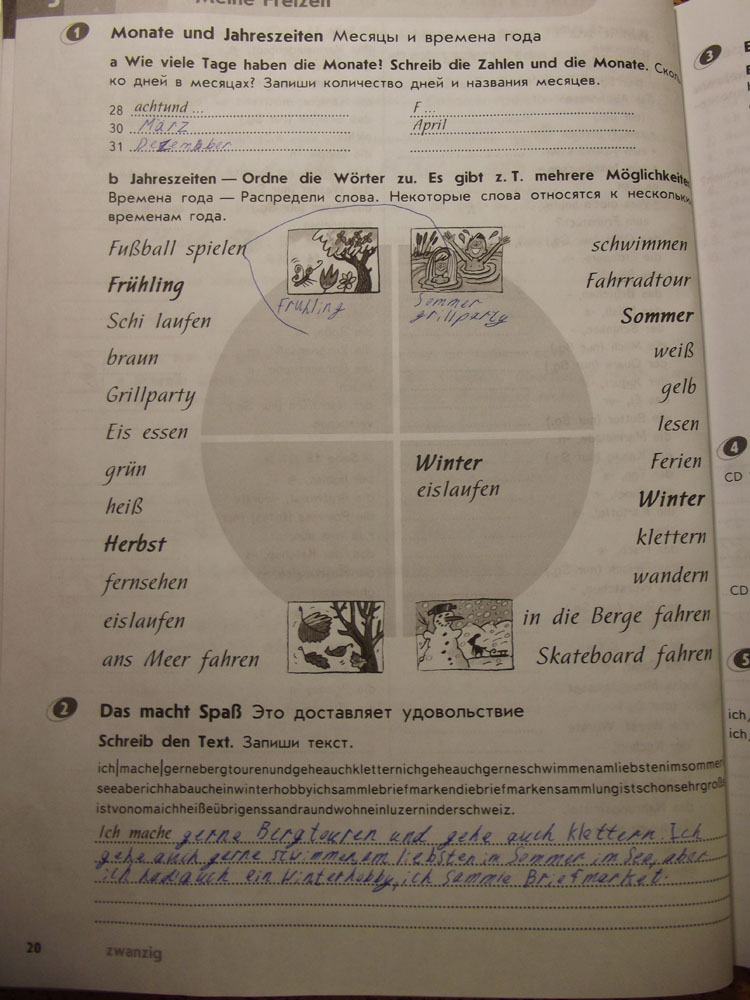 Meine Freizeit
1 Monate und Jahreszeiten Месяцы и времена года
a Wie viele Tage haben die Monate? Schreib die Zahlen und die Monate. Сколь
ко дней в месяцах? Запиши количество дней и названия месяцев.
28 achtund ... F ...
30 März April
31 Dezember
b Jahreszeiten — Ordne die Wörter zu. Es gibt z. T. mehrere Möglichkeiten
Времена года — Распредели слова. Некоторые слова относятся к нескольким
временам года.
Fußball spielen
Frühling
Schi laufen
braun
Grillparty
Eis essen
grün
heiß
Herbst
fernsehen
eislaufen
ans Meer fahren
Frühling
Sommer
grillparty
Winter
eislaufen
schwimmen
Fahrradtour
Sommer
weiß
gelb
lesen
Ferien
Winter
klettern
wandern
in die Berge fahren
Skateboard fahren
2 Das macht Spaß Это доставляет удовольствие
Schreib den Text. Запиши текст.
ich|mache|gernebergtourenundgeheauchkletternichgeheauchgerneschwimmenamliebstenimsommer
seeaberichhabaucheinwinterhobbyichsammlebriefmarkendiebriefmarkensammlungistschonsehrgroß
istvonomaichheißeübrigenssandraundwohneinluzerninderschweiz.
Ich mache gerne Bergtouren und gehe auch klettern. Ich
gehe auch gerne swimmen, am liebsten im Sommer im See, aber
ich hab auch ein Winterhobby, ich Sammle Briefmarket.
20 zwanzig
3
4
CD
CD
5
ich,
ich,